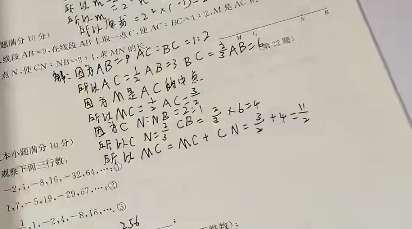 题满分 10 分)
线段 AB=9,在线段 AB 上取一点 C,使 AC:BC=1:2,M 是 AC 的
点 N,使 CN:NB=2:1,求 MN 的
解:因为AB=9 AC:BC=1:2
所以AC=⅓AB=3 BC=⅔AB=6
因为M是AC的中点
所以MC=½AC=3/2
因为CN:NB=2:1
所以CN=⅔CB=⅔×6=4
所以MC=MC+CN=3/2+4=11/2
本小题满分 10 分)
观察下面三行数:
-2,4,-8,16,-32,64,…;①
1,7,-5,19,-29,67,…;②
1,-2,4,-8,16,…③
256